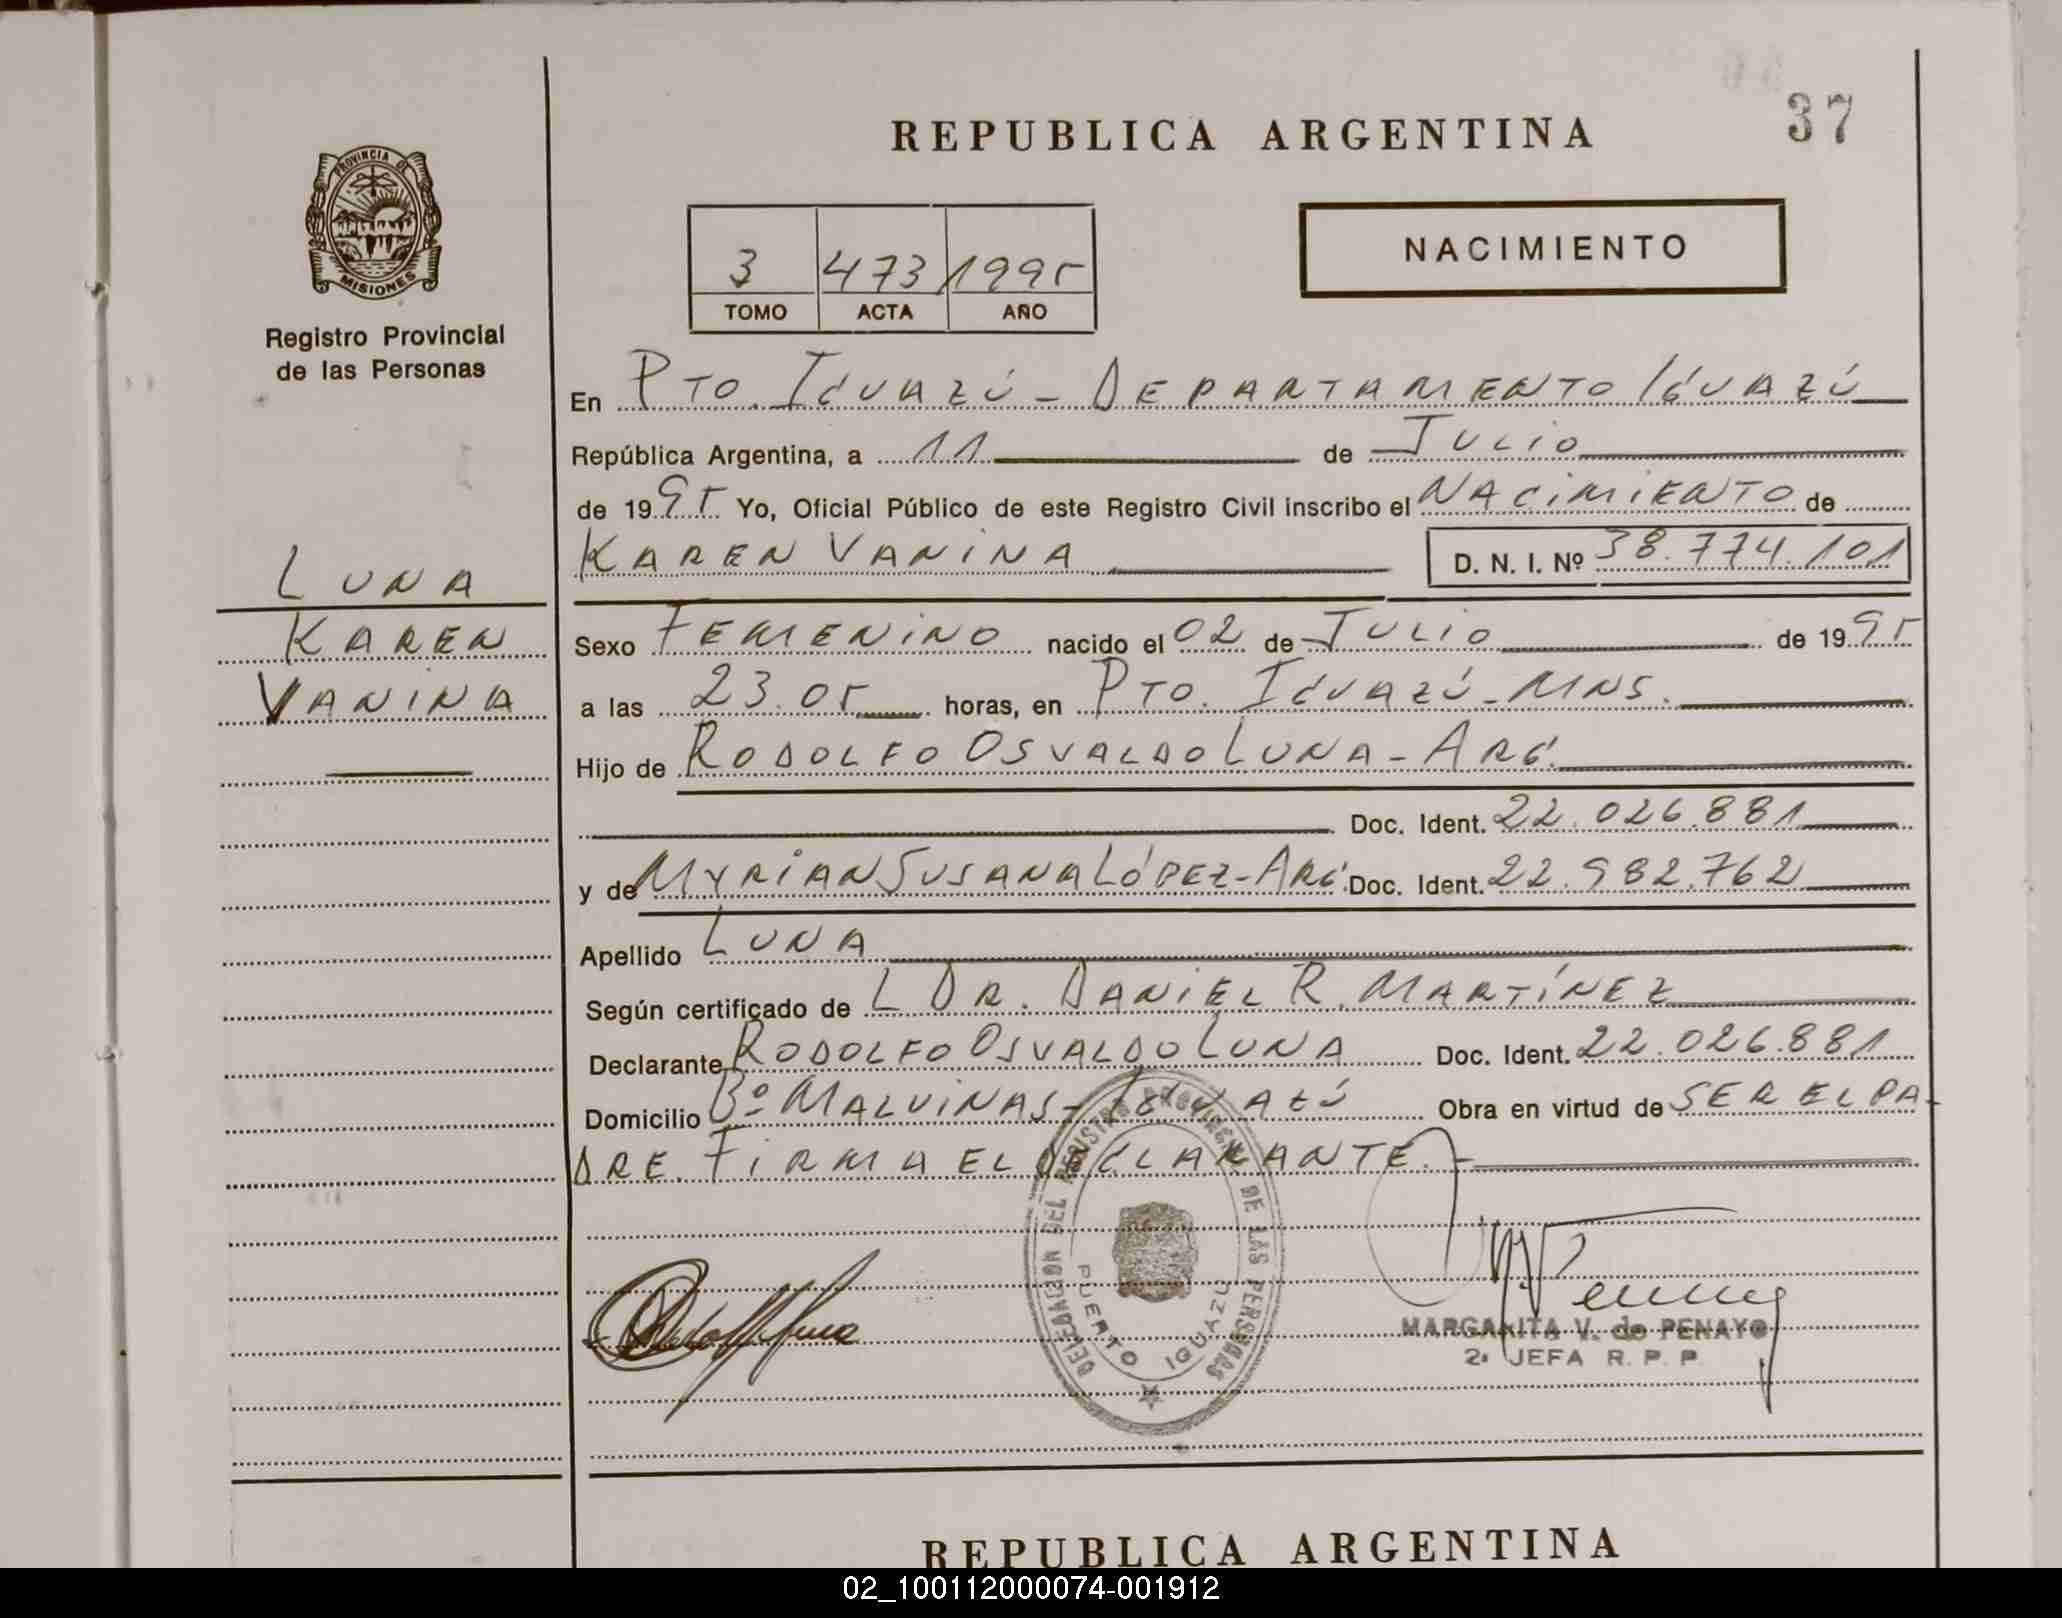 REPUBLICA ARGENTINA
37
PROVINCIA DE
MISIONES
Registro Provincial
de las Personas
3 473 1995
TOMO ACTA AÑO
NACIMIENTO
En PTO. IGUAZÚ - DEPARTAMENTO IGUAZÚ
República Argentina, a 11 de JULIO
de 1995 Yo, Oficial Público de este Registro Civil inscribo el NACIMIENTO de
KAREN VANINA D. N. I. Nº 38.774.101
LUNA
KAREN
VANINA
Sexo FEMENINO nacido el 02 de JULIO de 1995
a las 23.05 horas, en PTO. IGUAZÚ - MNS.
Hijo de RODOLFO OSVALDO LUNA - ARG.
Doc. Ident. 22.026.881
y de MYRIAN SUSANA LÓPEZ - ARG. Doc. Ident. 22.982.762
Apellido LUNA
Según certificado de L DR. DANIEL R. MARTÍNEZ
Declarante RODOLFO OSVALDO LUNA Doc. Ident. 22.026.881
Domicilio Bº MALVINAS - IGUAZÚ Obra en virtud de SER EL PA-
DRE. FIRMA EL DECLARANTE. -
DELEGACION DEL REGISTRO PROVINCIAL DE LAS PERSONAS
PUERTO IGUAZU
MARGARITA V. de PENAYO
2ª JEFA R. P. P.
REPUBLICA ARGENTINA
02_100112000074-001912